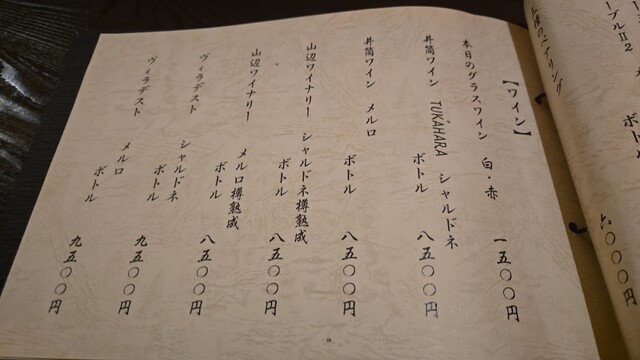 【ワイン】
本日のグラスワイン 白・赤 一五〇〇円
井筒ワイン TUKAHARA シャルドネ
ボトル 八五〇〇円
井筒ワイン メルロ
ボトル 八五〇〇円
山辺ワイナリー シャルドネ樽熟成
ボトル 八五〇〇円
山辺ワイナリー メルロ樽熟成
ボトル 八五〇〇円
ヴィラデスト シャルドネ
ボトル 九五〇〇円
ヴィラデスト メルロ
ボトル 九五〇〇円
ボトル
六〇〇〇円